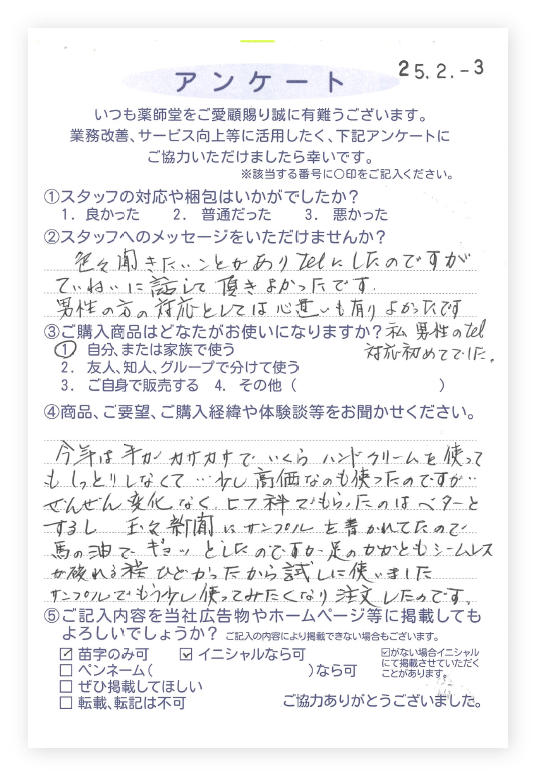 25.2.-3
アンケート
いつも薬師堂をご愛顧賜り誠に有難うございます。
業務改善、サービス向上等に活用したく、下記アンケートに
ご協力いただけましたら幸いです。
※該当する番号に〇印をご記入ください。
①スタッフの対応や梱包はいかがでしたか?
1. 良かった 2. 普通だった 3. 悪かった
②スタッフへのメッセージをいただけませんか?
色々聞きたいことがありtelにしたのですが
ていねいに話して頂きよかったです.
男性の方の対応としては心遣いも有りよかったです
③ご購入商品はどなたがお使いになりますか?
私 男性のtel
対応初めてでした。
① 自分、または家族で使う
2. 友人、知人、グループで分けて使う
3. ご自身で販売する 4. その他( )
④商品、ご要望、ご購入経緯や体験談等をお聞かせください。
今年は手がカサカサで いくら ハンドクリームを使って
もしっとりしなくて…少し高価なのも使ったのですが…
ぜんぜん変化なく.ヒフ科でもらったのはベターと
するし 新聞にサンプルを書かれてたので
馬の油でギョッとしたのですが足のかかともシームレス
が破れる程ひどかったから試しに使いました
サンプルでもう少し使ってみたくなり注文したのです。
⑤ご記入内容を当社広告物やホームページ等に掲載しても
よろしいでしょうか? ご記入の内容により掲載できない場合もございます。
☑ 苗字のみ可 ☑ イニシャルなら可
☑がない場合イニシャル
にて掲載させていただく
ことがあります。
□ ペンネーム( )なら可
□ ぜひ掲載してほしい
□ 転載、転記は不可
ご協力ありがとうございました。